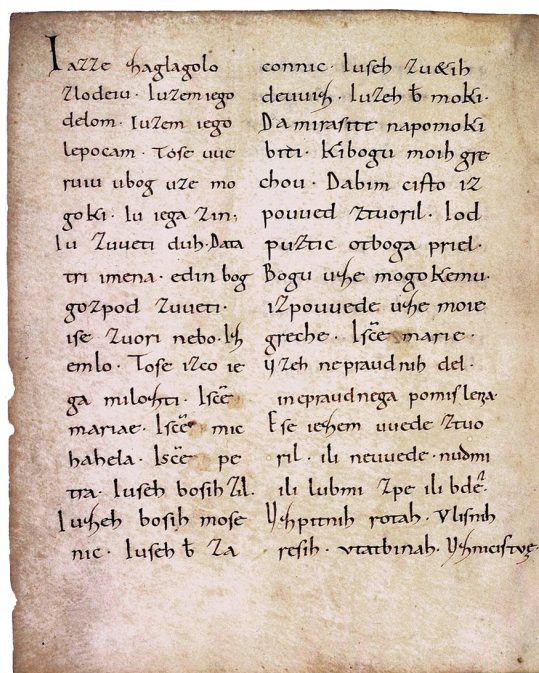 Iazze zaglagolo
zlodeiu. Iuzem iego
delom. Iuzem iego
lepocam. Tose uue
ruiu ubog uze mo
goki. Iu iega zin,
Iu zuueti duh. Data
tri imena. edin bog
gozpod zuueti.
ise zuori nebo. Iz
emlo. Tose izco ie
ga milozti. Isce
mariae. Isce mic
hahela. Isce pe
tra. Iuseh bosih zil.
Iuzeh bosih mose
nic. Iuseh b̄ za
connic. Iuseh zu&ih
deuuiz. Iuzeh b̄ moki.
Da mirasite napomoki
biti. Kibogu moih gre
chou. Dabim cisto iz
pouued ztuoril. Iod
puztic otboga priel.
Bogu uze mogokemu.
izpouuede uze moie
greche. Isce marie.
yzeh nepraudnih del.
inepraudnega pomislena.
Ese iezem uuede ztuo
ril. ili neuuede. nudmi
ili lubmi zpe ili bde.
Uzpitnih rotah. Vlisnih
resih. vtatbinah. Uznicistoge.